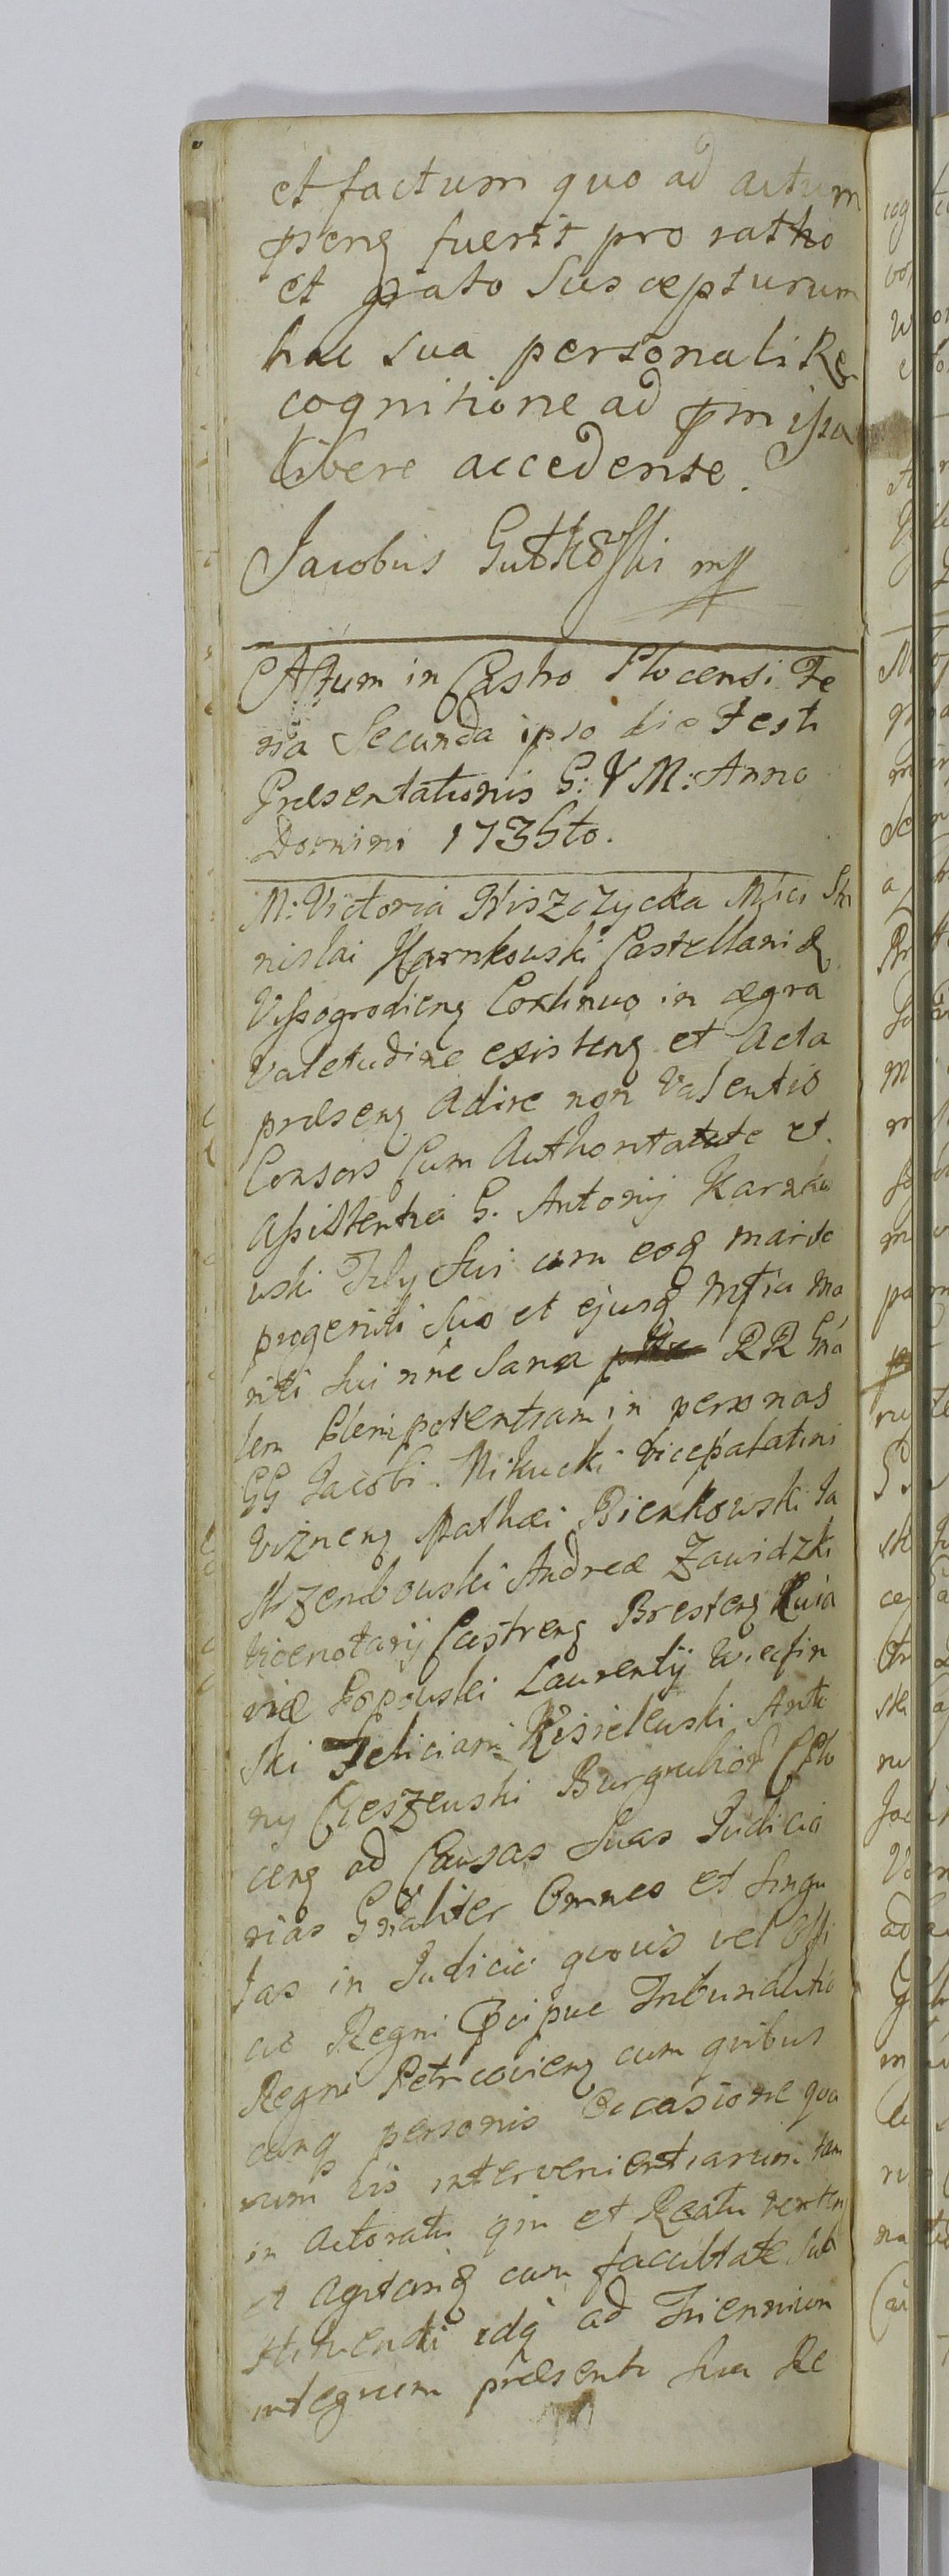 et factum quo ad actum
pseng fuerit pro ratho
et grato Suscepturum
hac sua personali Re
cognitione ad pmissa
libere accedente.
Jacobus Gutkoski mp
Actum in Castro Plocensi Fe
ria Secunda ipso die Festi
Præsentationis B: V M: Anno
Domini 1735to.
M: Victoria Niszczycka Mfci Sta
nislai Karnkowski Castellani
Vissogrodieng Continuo in ægra
Valetudine existeng et Acta
præseng Adire non Valentis
Consors Cum Authoritatete et
Assistentia G. Antonij Karnko
wski Filij Sui cum eoq marito
progeniti Suo et ejusq Mfici Ma
riti sui nne Sana RR Gna
lem Plenipotentiam in personas
GG Jacobi Nikucki Vicepalatini
Vizneng Mathæi Bienkowski Ja
strzembowski Andreæ Zawidzki
Vicenotarij Castreng Bresteng Kuia
viæ Popowski Laurentij
ski Feliciani Kisielewski Anto
nij Cieszewski Burgrabior Plo
ceng ad Causas Suas Judicia
rias Gnaliter Omnes et Singu
las in Judicio quovis vel Offi
cio Regni Pcipue Tribunalitio
Regni Petricovieng cum quibus
cunq personis Occasione quo
rum vis intervenientiarum tam
in Actoratu qm et Reatu verten
et Agitang cum facultate Sub
stituendi idq ad Triennium
integrum præsenti Sua Re